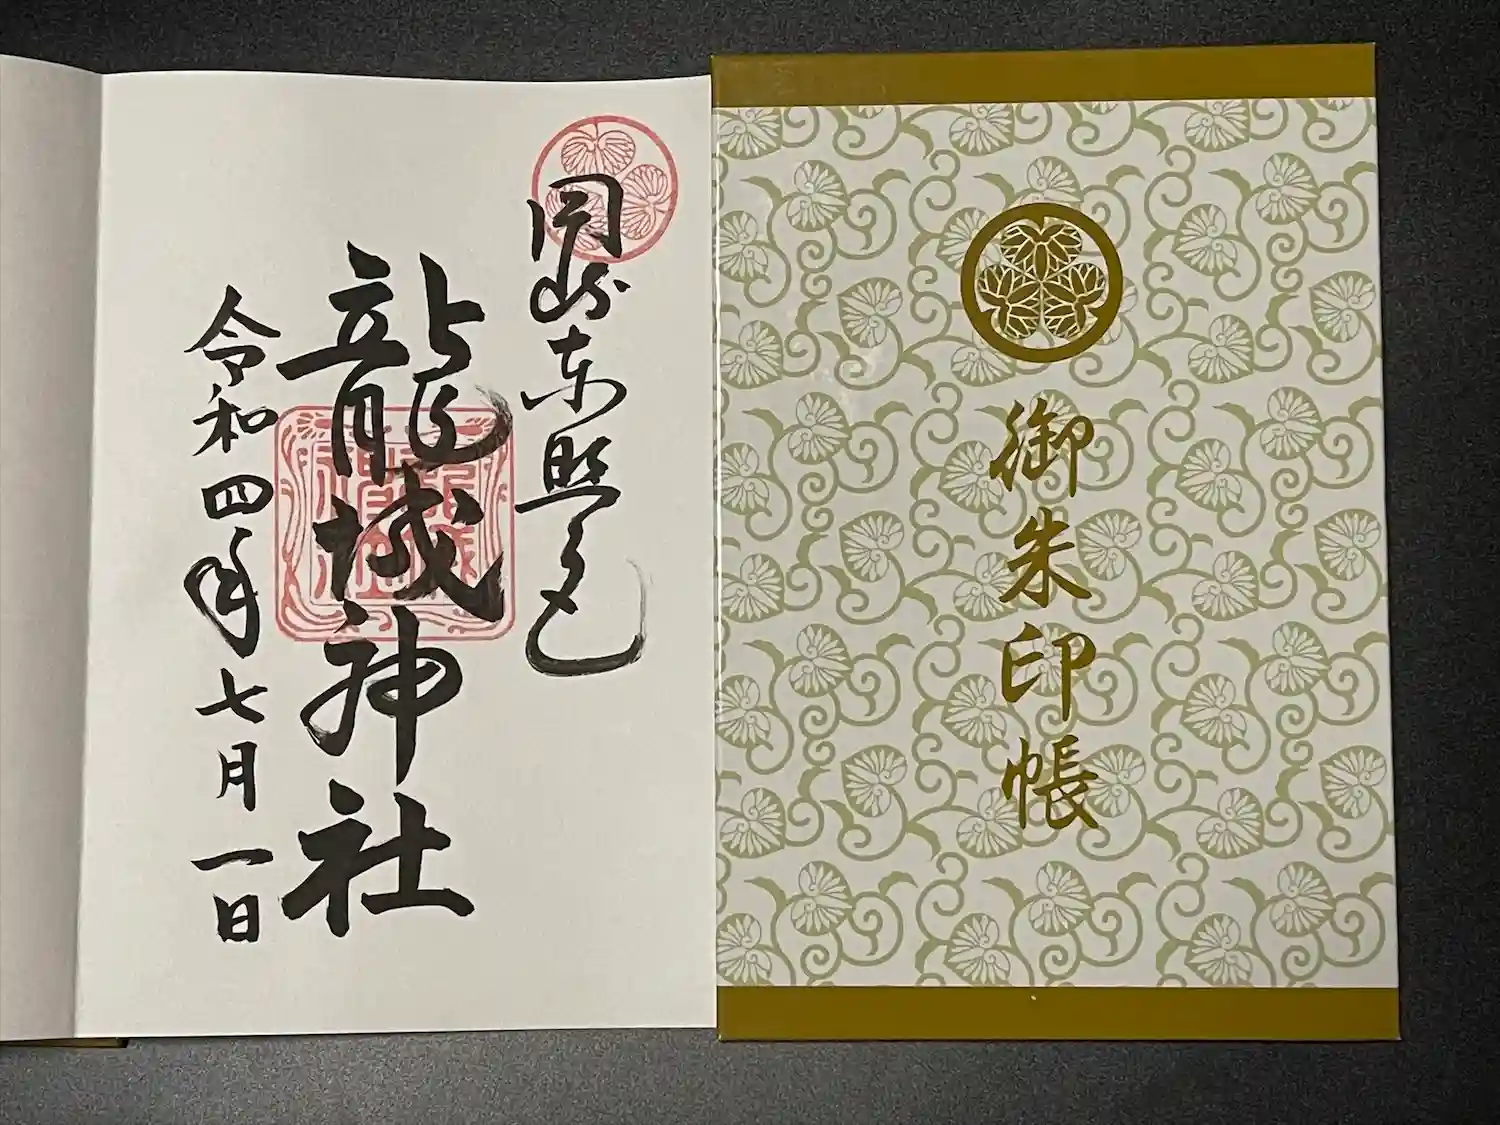 岡崎東照宮
龍城神社
令和四年七月一日
御朱印帳